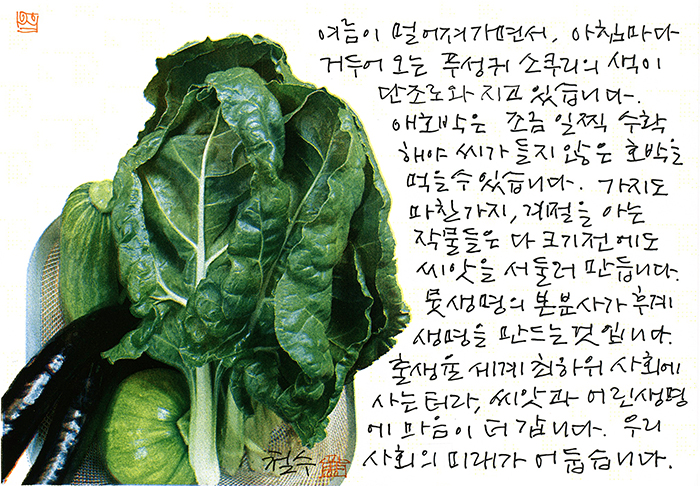 여름이 멀어져가면서, 아침마다
거두어 오는 푸성귀 소쿠리의 색이
단조로와 지고 있습니다.
애호박은 조금 일찍 수확
해야 씨가 들지 않은 호박을
먹을수 있습니다. 가지도
마찬가지, 계절을 아는
작물들은 다 크기전에도
씨앗을 서둘러 만듭니다.
뭇생명의 본분사가 후계
생명을 만드는것 입니다.
출생율 세계 최하위 사회에
사는터라, 씨앗과 어린생명
에 마음이 더 갑니다. 우리
사회의 미래가 어둡습니다.
철수